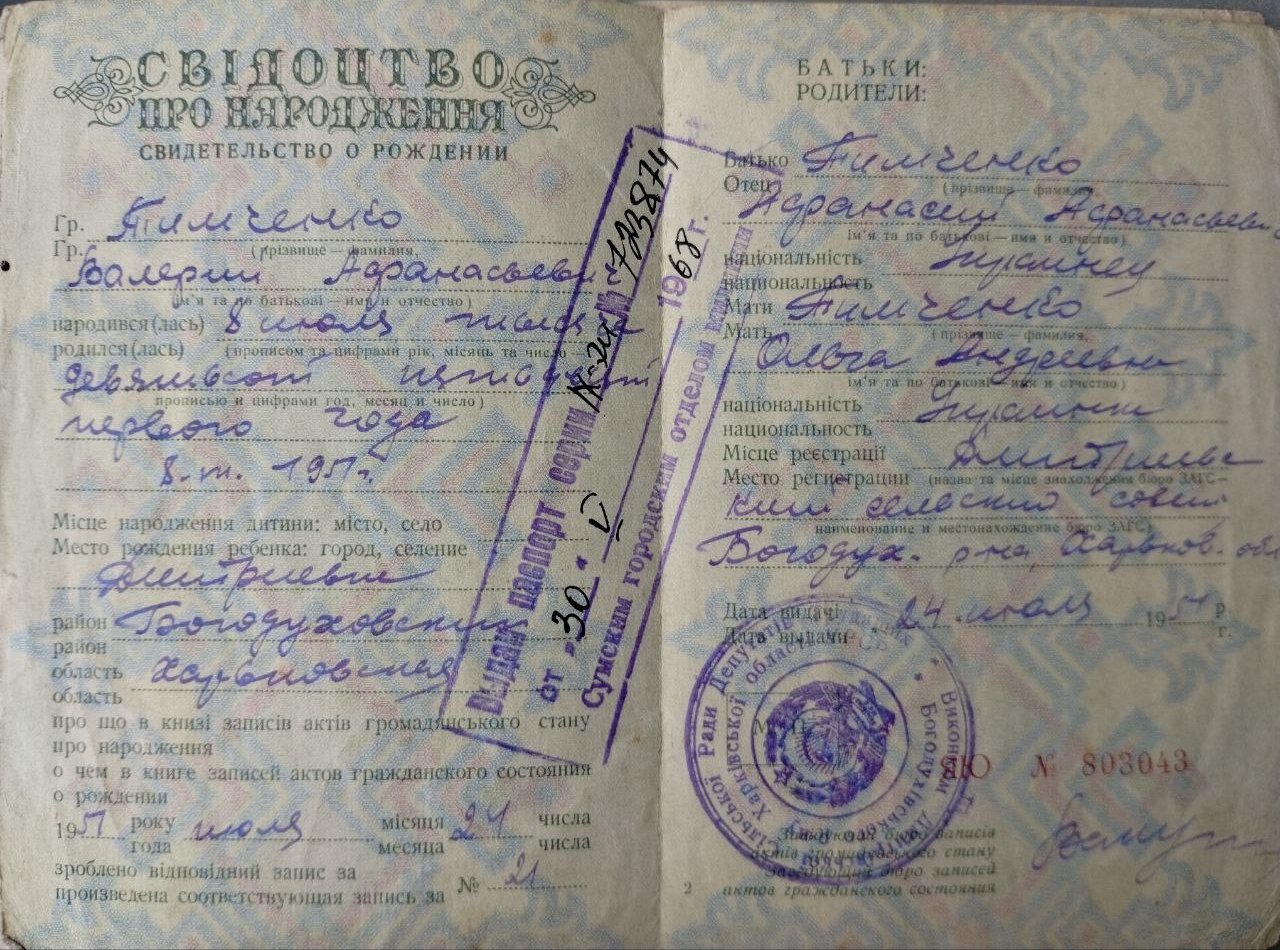 СВІДОЦТВО
ПРО НАРОДЖЕННЯ
СВИДЕТЕЛЬСТВО О РОЖДЕНИИ
Гр. Тимченко
Гр. (прізвище — фамилия,
Валерий Афанасьеви
ім'я та по батькові — имя и отчество)
народився(лась) 8 июля тысяч
родился(лась) (прописом та цифрами рік, місяць та число —
девятьсот пятьдесят
прописью и цифрами год, месяц и число)
первого года
195 г.
Місце народження дитини: місто, село
Место рождения ребенка: город, селение
Дмитриевка
район Богодуховский
район
область Харьковская
область
про що в книзі записів актів громадянського стану
про народження
о чем в книге записей актов гражданского состояния
о рождении
1951 року июля місяця 24 числа
года месяца числа
зроблено відповідний запис за
произведена соответствующая запись за № 21
Выдан паспорт серии № 723874
от „30" V 1968 г.
Сумским городским отделом милиции
БАТЬКИ:
РОДИТЕЛИ:
Батько Тимченко
Отец (прізвище — фамилия,
Афанасий Афанасьеви
ім'я та по батькові — имя и отчество)
національність Украинец
национальность
Мати Тимченко
Мать (прізвище — фамилия,
Ольга Андреевна
ім'я та по батькові — имя и отчество)
національність Украинка
национальность
Місце реєстрації Дмитриевс
Место регистрации (назва та місце знаходження бюро ЗАГС —
кий сельский совет
наименование и местонахождение бюро ЗАГС)
Богодух. р-на, Харьков. обл
Дата видачі „24" июля 1951 р.
Дата выдачи г.
М. П.
ЯЮ № 803043
Завідуючий бюро записів
актів громадянського стану
Заведующий бюро записей
актов гражданского состояния
2
Виконком Дмитрівської Сільської Ради Депутатів Трудящих
Богодухівського р-ну Харківської області